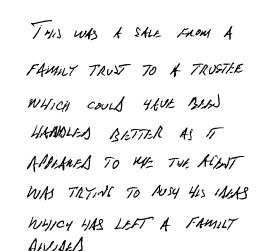 THIS WAS A SALE FROM A
FAMILY TRUST TO A TRUSTEE
WHICH COULD HAVE BEEN
HANDLED BETTER AS IT
APPEARED TO ME THE AGENT
WAS TRYING TO PUSH HIS IDEAS
WHICH HAS LEFT A FAMILY
DIVIDED